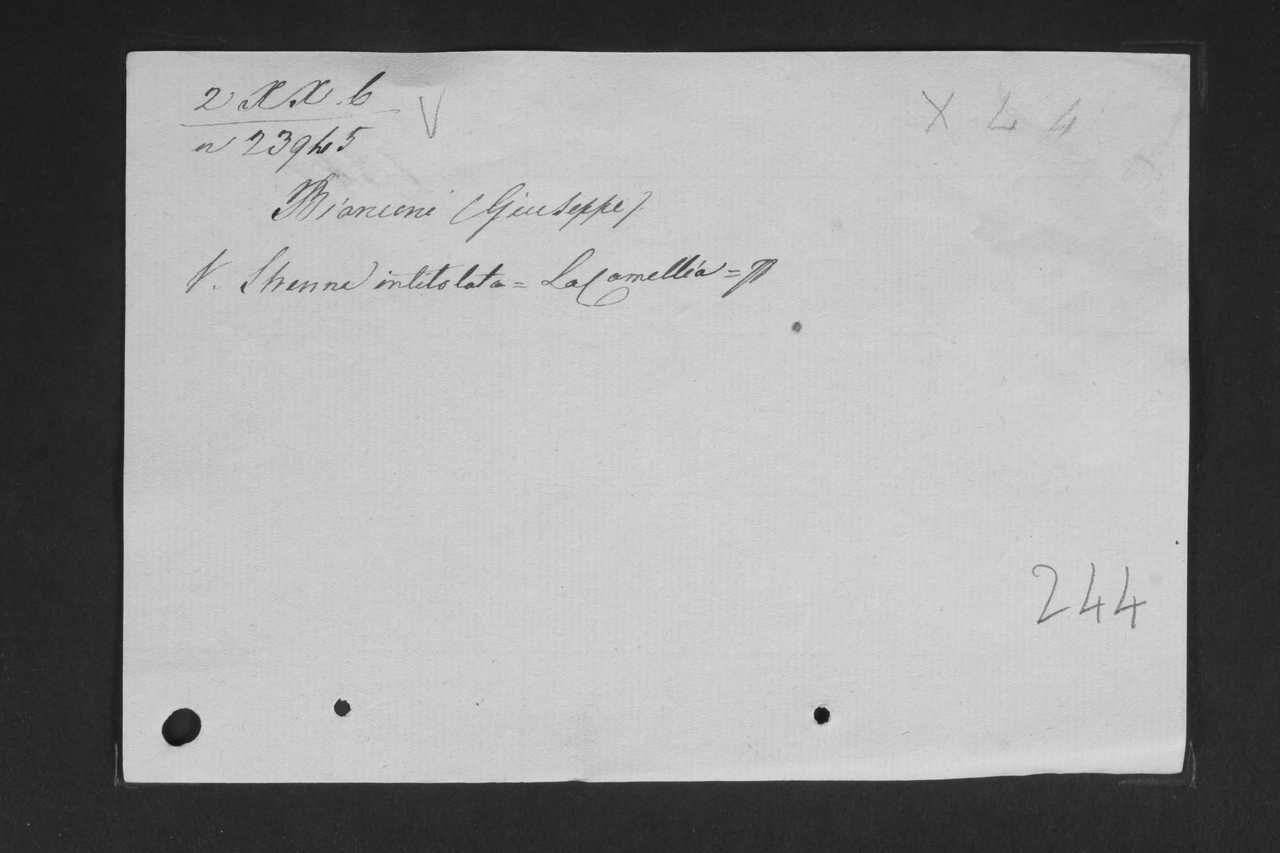 2 XX. 6 V
X L 4
n 23945
Bianconi (Giuseppe)
V. Strenna intitolata = La Camellia =
244